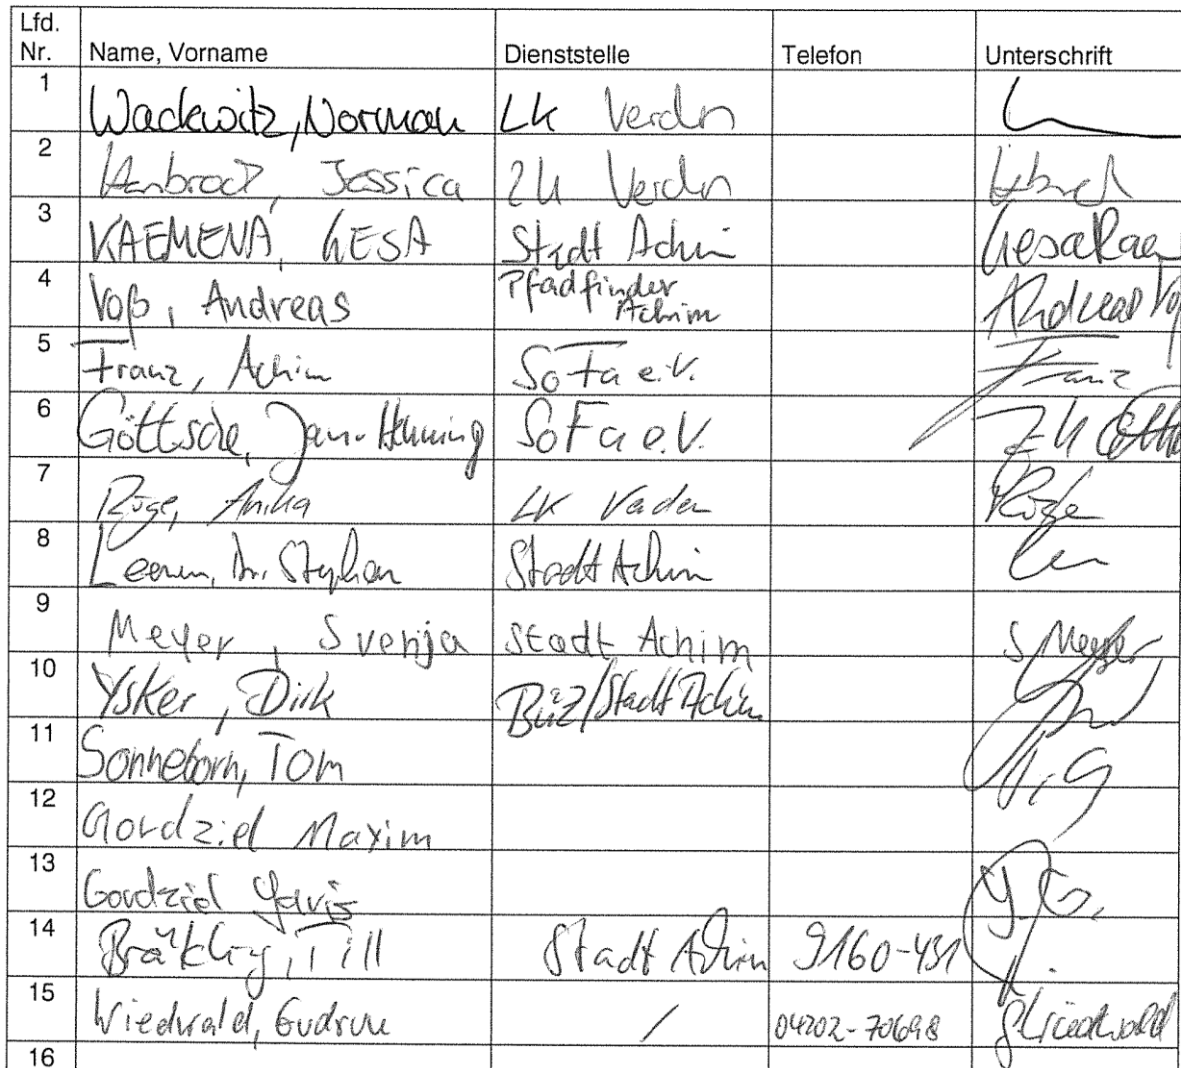 Lfd.
Nr. Name, Vorname Dienststelle Telefon Unterschrift
1 Wackwitz, Norman LK Verden
2 Jessica LK Verden
3 KAEMENA, GESA Stadt Achim Gesa Kae
4 Voß, Andreas Pfadfinder Achim Andreas Voß
5 Franz, Achim SoFa e.V. Franz
6 Göttsche, Jan-Henning SoFa e.V.
7 Anika LK Verden
8 Dr. Stephan Stadt Achim
9 Meyer, Svenja Stadt Achim S. Meyer
10 Ysker, Dirk BüZ/Stadt Achim
11 Sonneborn, Tom
12 Gordziel Maxim
13 Gordziel
14 Till Stadt Achim 9160-431
15 Wiedwald, Gudrun / 04202-70698 GWiedwald
16